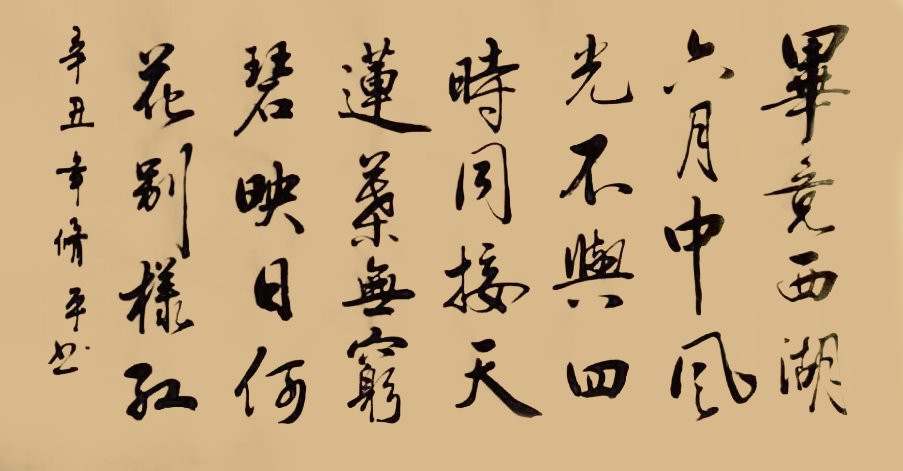 畢竟西湖
六月中風
光不與四
時同接天
蓮葉無窮
碧映日何
花別樣紅
辛丑年脩平书